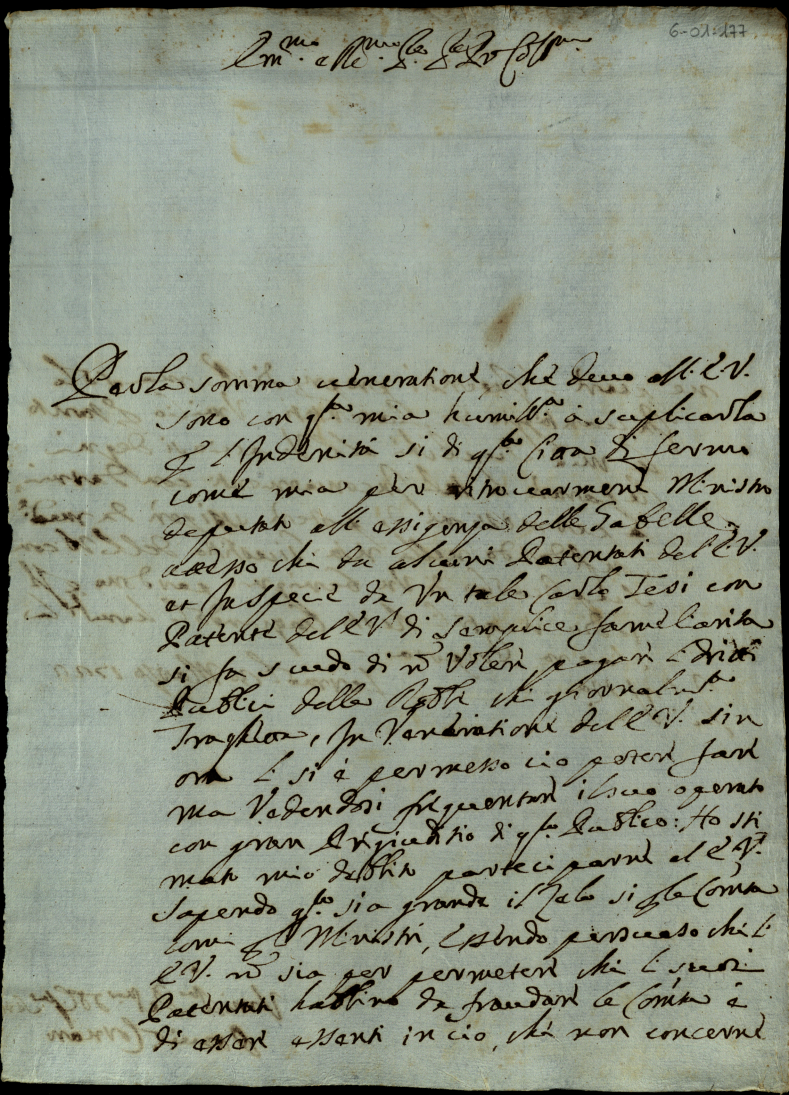 6-01:177
Em.mo e Rev.mo
Per la somma veneratione, che devo all'E.V.
sono con q.sta mia humill.ma à suplicarla
p l'Indenità si di q.sta Città di fermo
come mia per ritrovarmene Ministro
deputato all'essigenza delle Gabelle,
adesso che da alcuni Patentati del'E.V.
et In specie da Un tale Carlo Tesi con
Patente del'E.V. di semplice fameliarita
si fa scudo di nō Voler pagare l dritti
Publici delle Robbe che giornalm.te
Traghetta, In Veneratione del'E.V. sin
ora l si è permesso cio poter fare
ma Vedendosi frequentare il suo operato
con gran Pregiuditio di q.sto Publico: Ho sti
mato mio debbito parteciparne al'E.V.
sapendo q.to sia grande il Zelo si p le Com.ta
come p Ministri, Essendo persuaso che l'
E.V. nō sia per permetere che l suoi
Patentati habbino da fraudare le Com.ta e
di essere essenti in cio, che non concerne